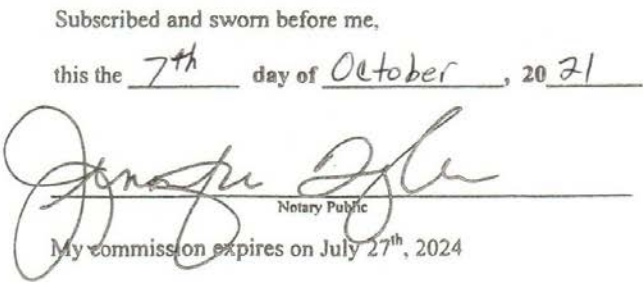 Subscribed and sworn before me,
this the 7th day of October, 2021
Notary Public
My commission expires on July 27th, 2024